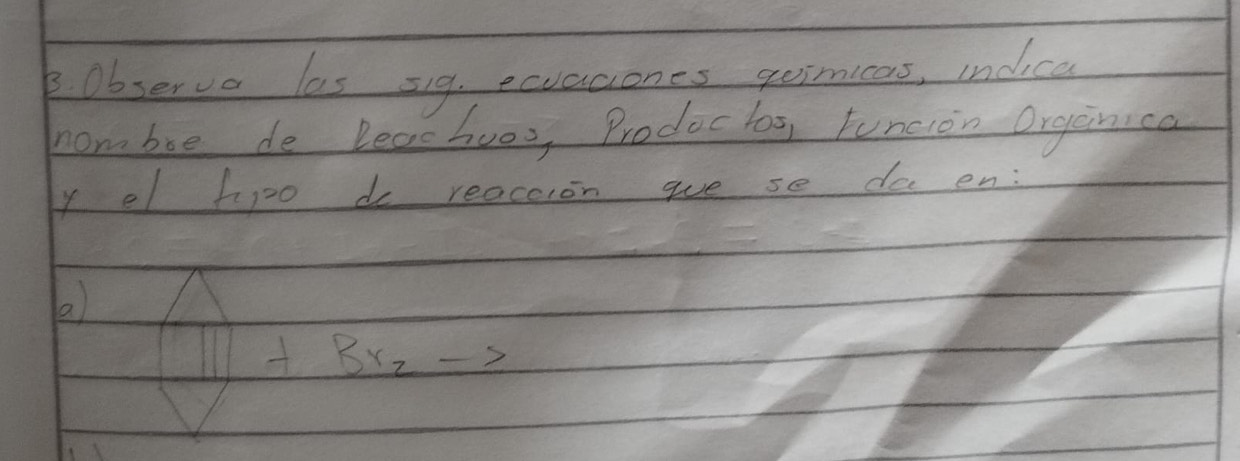 3. Observa las sig. ecuaciones químicas, indica
nombre de Reactivos, Productos, Función Orgánica
y el tipo de reacción que se da en:
a) + Br₂ →